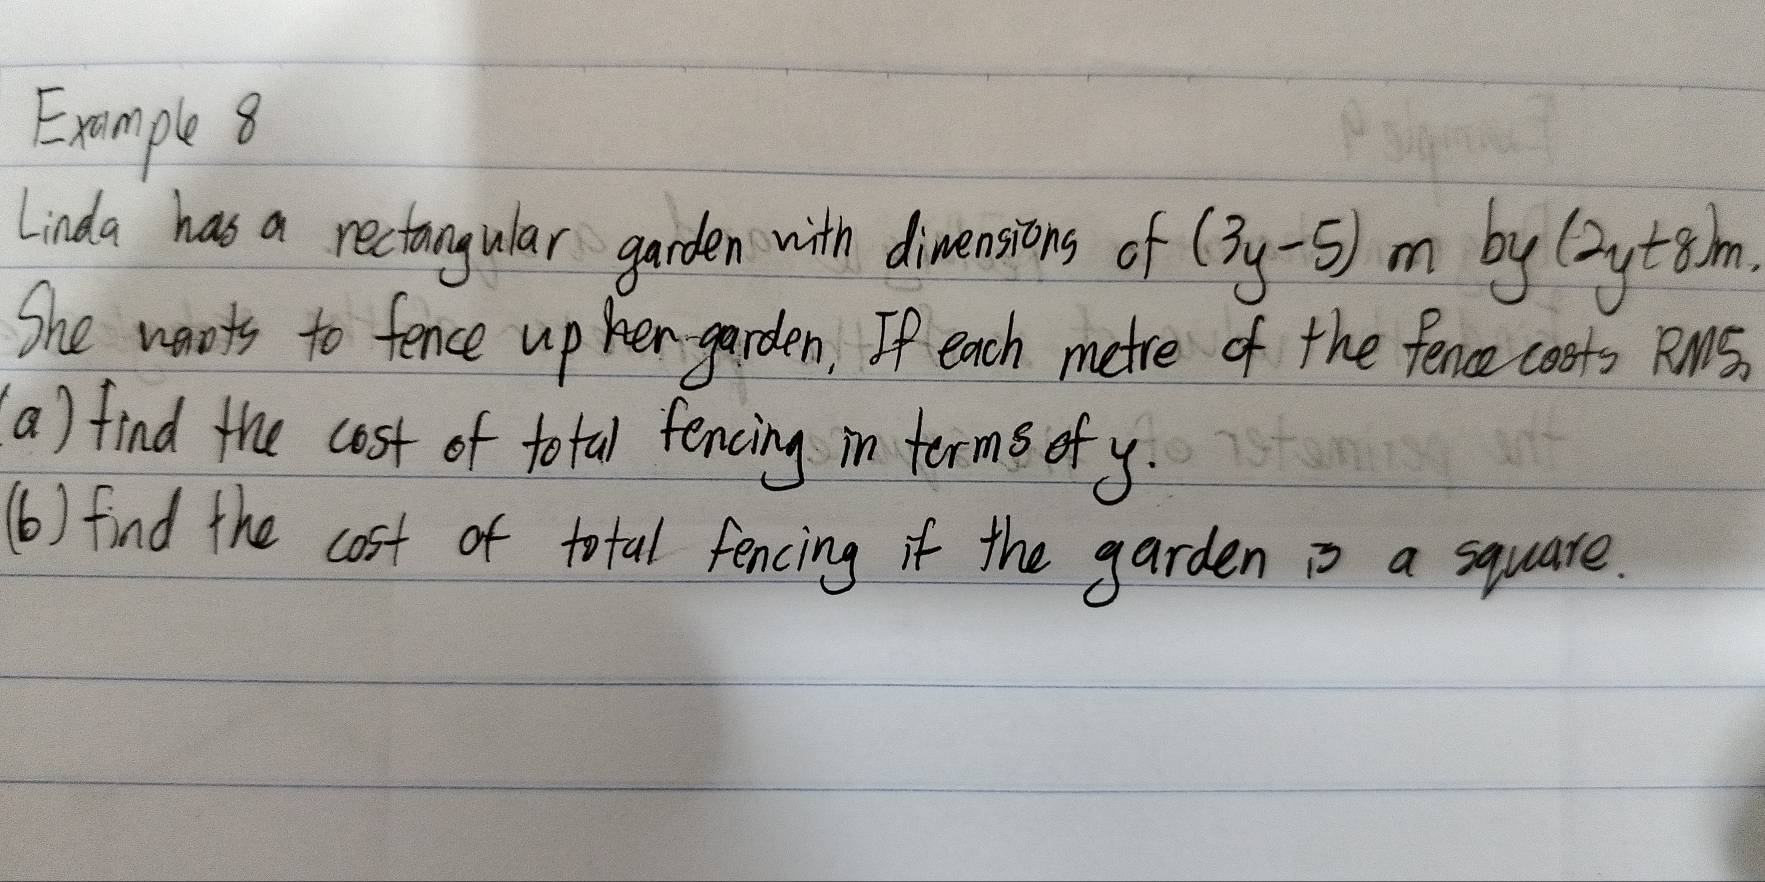 Example 8
Linda has a rectangular garden with dimensions of (3y-5) m by (2y+8)m.
She wants to fence up her garden, If each metre of the fence costs RM5,
(a) find the cost of total fencing in terms of y.
(b) find the cost of total fencing if the garden is a square.